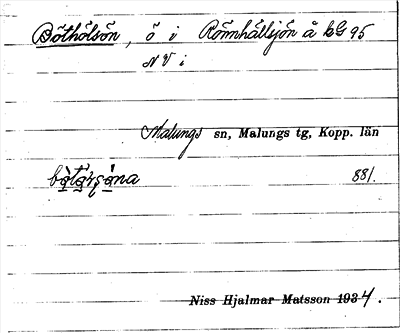 Bötholsön, ö i Rönnhållsjön å bG 95
NV i
Malungs sn, Malungs tg, Kopp. län
881.
Niss Hjalmar Matsson 1934.